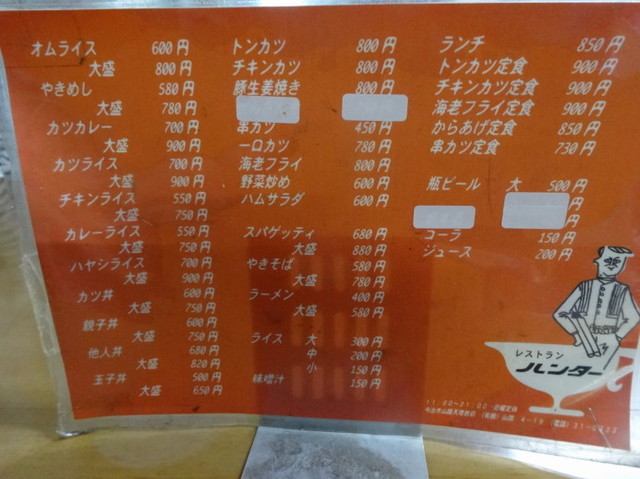 オムライス 600円
大盛 800円
やきめし 580円
大盛 780円
カツカレー 700円
大盛 900円
カツライス 700円
大盛 900円
チキンライス 550円
大盛 750円
カレーライス 550円
大盛 750円
ハヤシライス 700円
大盛 900円
カツ丼 600円
大盛 750円
親子丼 600円
大盛 750円
他人丼 680円
大盛 820円
玉子丼 500円
大盛 650円
トンカツ 800円
チキンカツ 800円
豚生姜焼き 800円
串カツ 450円
一口カツ 780円
海老フライ 800円
野菜炒め 600円
ハムサラダ 600円
スパゲッティ 680円
大盛 880円
やきそば 580円
大盛 780円
ラーメン 400円
大盛 580円
ライス 大 300円
中 200円
小 150円
味噌汁 150円
ランチ 850円
トンカツ定食 900円
チキンカツ定食 900円
海老フライ定食 900円
からあげ定食 850円
串カツ定食 730円
瓶ビール 大 500円
円
円
コーラ 150円
ジュース 200円
レストラン
ハンター
11:00~21:00